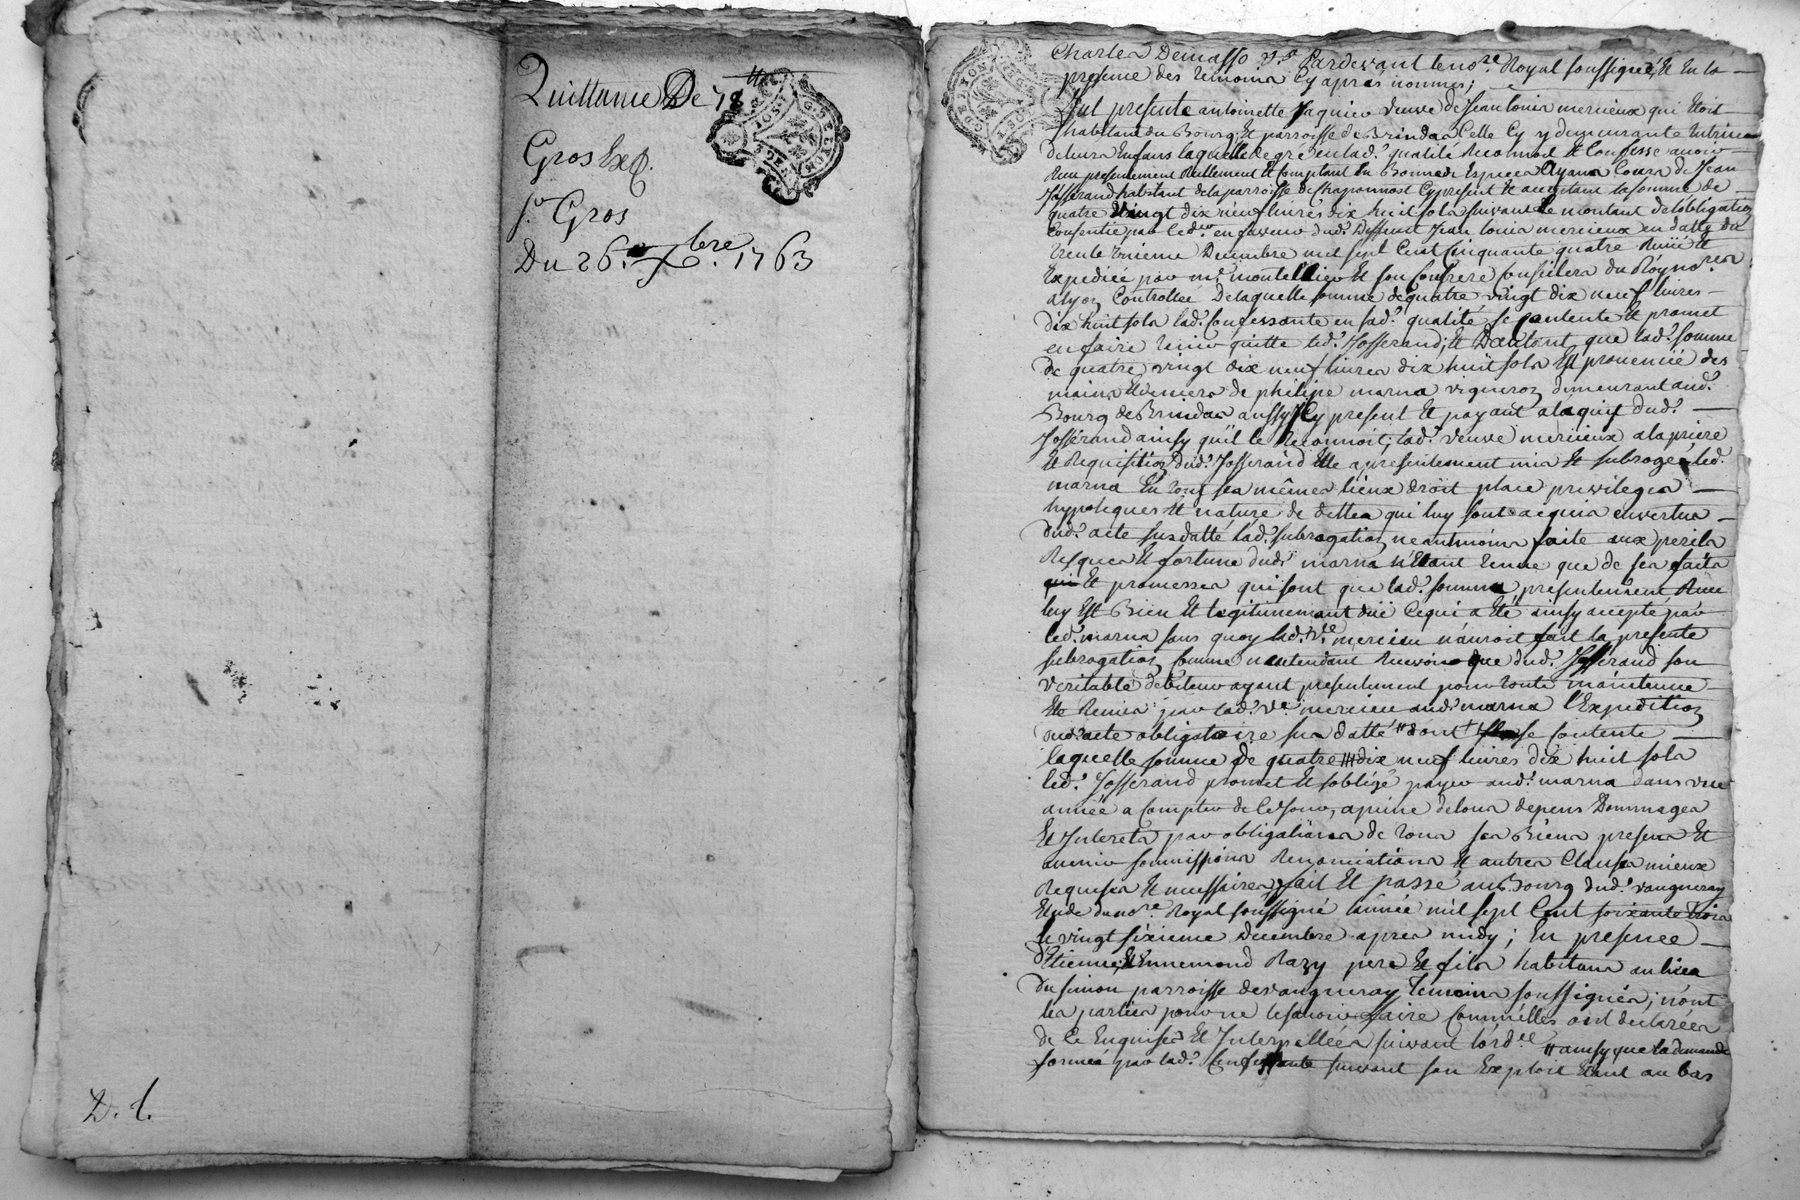 Quittance De 78 ₶
Gros Exp.
p.r Gros
Du 26.e Xbre. 1763
D. l.
Charles Demasso Pardevant le nore. Royal soussigné, Et En la
presence des temoins Cy aprés nommés;
fut presente antoinette Jaquier veuve de Jean louis mercieux qui Etoit
habitant du Bourg Et parroisse de Brindas Celle Cy y demeurante tutrice
de leurs Enfans laquelle de gré en lad.e qualité Reconnoit Et Confesse avoir
Reçu presentement Reellement Et Comptant En Bonnes Especes Ayans Cours de Jean
Josserand habitant de la parroisse de Chaponnost Cy present Et acceptant la somme de
quatre vingt dix neuf livres dix huit sols suivant le montant de l'obligation
Consentie par led.t en faveur dud.t Deffunt Jean louis mercieux en datte du
trente unieme Decembre mil sept Cent Cinquante quatre Reçüe Et
Expediée par m.e montellier Et son Confrere Conseilers du Roy nores
a lyon Controllée De laquelle somme de quatre vingt dix neuf livres
dix huit sols lad.e Confessante en sad.e qualité se Contente Et promet
en faire tenir quitte led.t Josserand; Et D'autant que lad.e somme
de quatre vingt dix neuf livres dix huit sols Est provenüe des
mains Et deniers de philipe marna vigneron demeurant aud.t
Bourg de Brindas aussy Cy present Et payant a l'aquit dud.t
Josserand ainsy qu'il le Reconnoit; lad.e veuve mercieux a la priere
Et Requisition dud.t Josserand Elle a presentement mis Et subrogé led.t
marna En tous ses mêmes lieux droit place privileges
hypoteques Et nature de dettes qui luy sont acquis en vertu
dud.t acte susdatté lad.e subrogation neantmoins faite aux perils
Risques Et fortune dud.t marna n'Etant tenue que de ses faits
Et promesses qui sont que lad.e somme presentement Reçüe
luy Est Bien Et legitimement düe Ce qui a Eté ainsy accepté par
led.t marna sans quoy lad.e Ve mercieu n'auroit fait la presente
subrogation Comme n'entendant Recevoir que dud.t Josserand son
veritable debiteur ayant presentement pour toute maintenue
Eté Remis par lad.e Ve mercieu aud.t marna l'Expedition
dud.t acte obligatoire sus datté # dont Il se Contente
laquelle somme de quatre dix neuf livres dix huit sols
led.t Josserand promet Et s'oblige payer aud.t marna dans une
année a Compter de Ce Jour, a peine de tous depens Dommages
Et Interets par obligations de tous ses Biens presens Et
avenir soumissions Renonciations Et autres Clauses mieux
Requises Et necessaires fait Et passé au Bourg dud.t vaugneray
Etude du nore. Royal soussigné L'année mil sept Cent soixante trois
le vingt sixieme decembre apres midy; En presence
d'Etienne, Et Ennemond Razy pere Et fils habitans au lieu
du simon parroisse de vaugneray temoins soussignés; n'ont
les parties pour ne le savoir faire Comm'elles ont declarées
de Ce Enquises Et Interpellées suivant l'ord.ce # ainsy que la demande
formée par lad.e Confessante suivant son Exploit Etant au bas